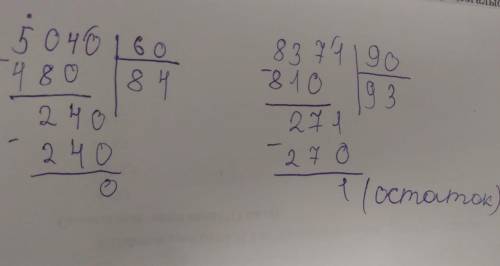 5040 | 60
- 480 | 84
240
- 240
0
8371 | 90
- 810 | 93
271
- 270
1 (остаток)